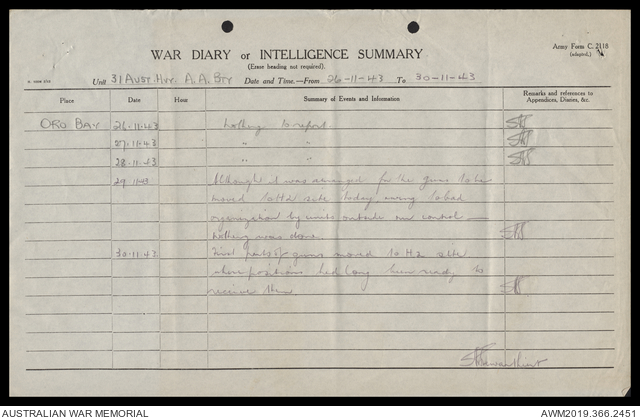 Army Form C. 2118
(adapted.)
WAR DIARY or INTELLIGENCE SUMMARY
(Erase heading not required).
Unit 31 AUST. HVY. A.A. BTY Date and Time.—From 26-11-43 To 30-11-43
Place Date Hour Summary of Events and Information Remarks and references to Appendices, Diaries, &c.
ORO BAY 26.11.43 Nothing to report
27.11.43 " "
28.11.43 " "
29.11.43 Although it was arranged for the guns to be
moved to H2 site today owing to bad
organization by units outside our control -
nothing was done.
30.11.43 First parts of guns moved to H2 site
where positions had long been ready to
receive them
AUSTRALIAN WAR MEMORIAL
AWM2019.366.2451